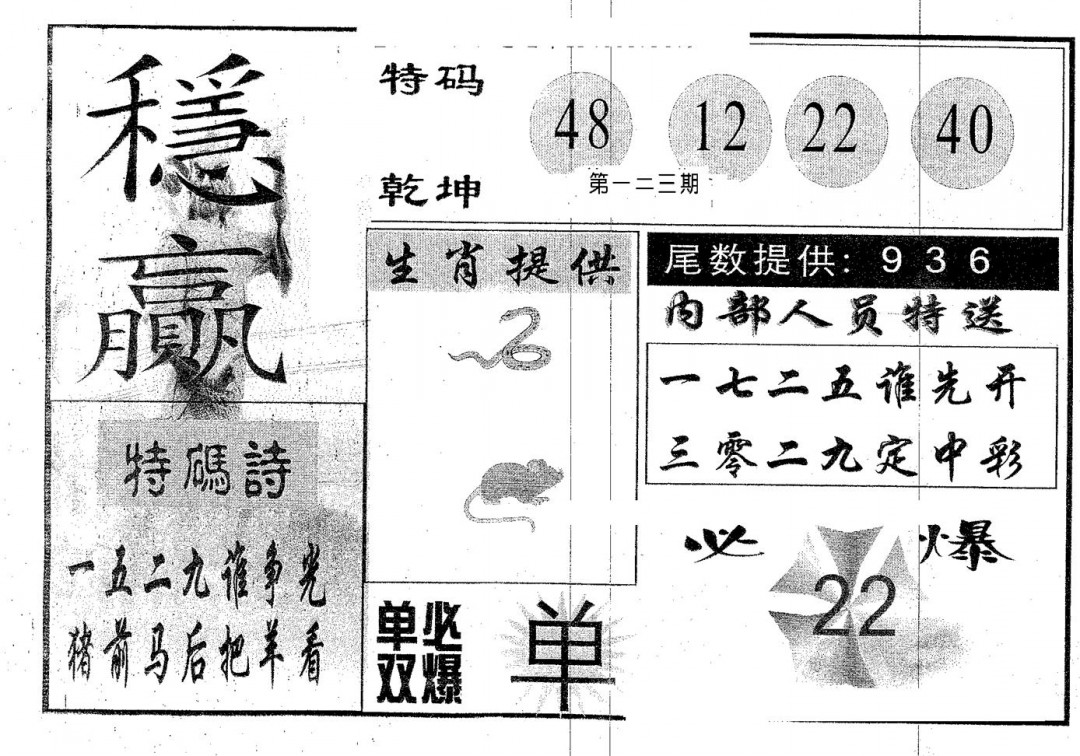 穩
贏
特码
乾坤
48 12 22 40
第一二三期
生肖提供
尾数提供: 9 3 6
内部人员特送
一七二五谁先开
三零二九定中彩
特碼詩
一五二九谁争光
猪前马后把羊看
单必
双爆
单
必爆
22